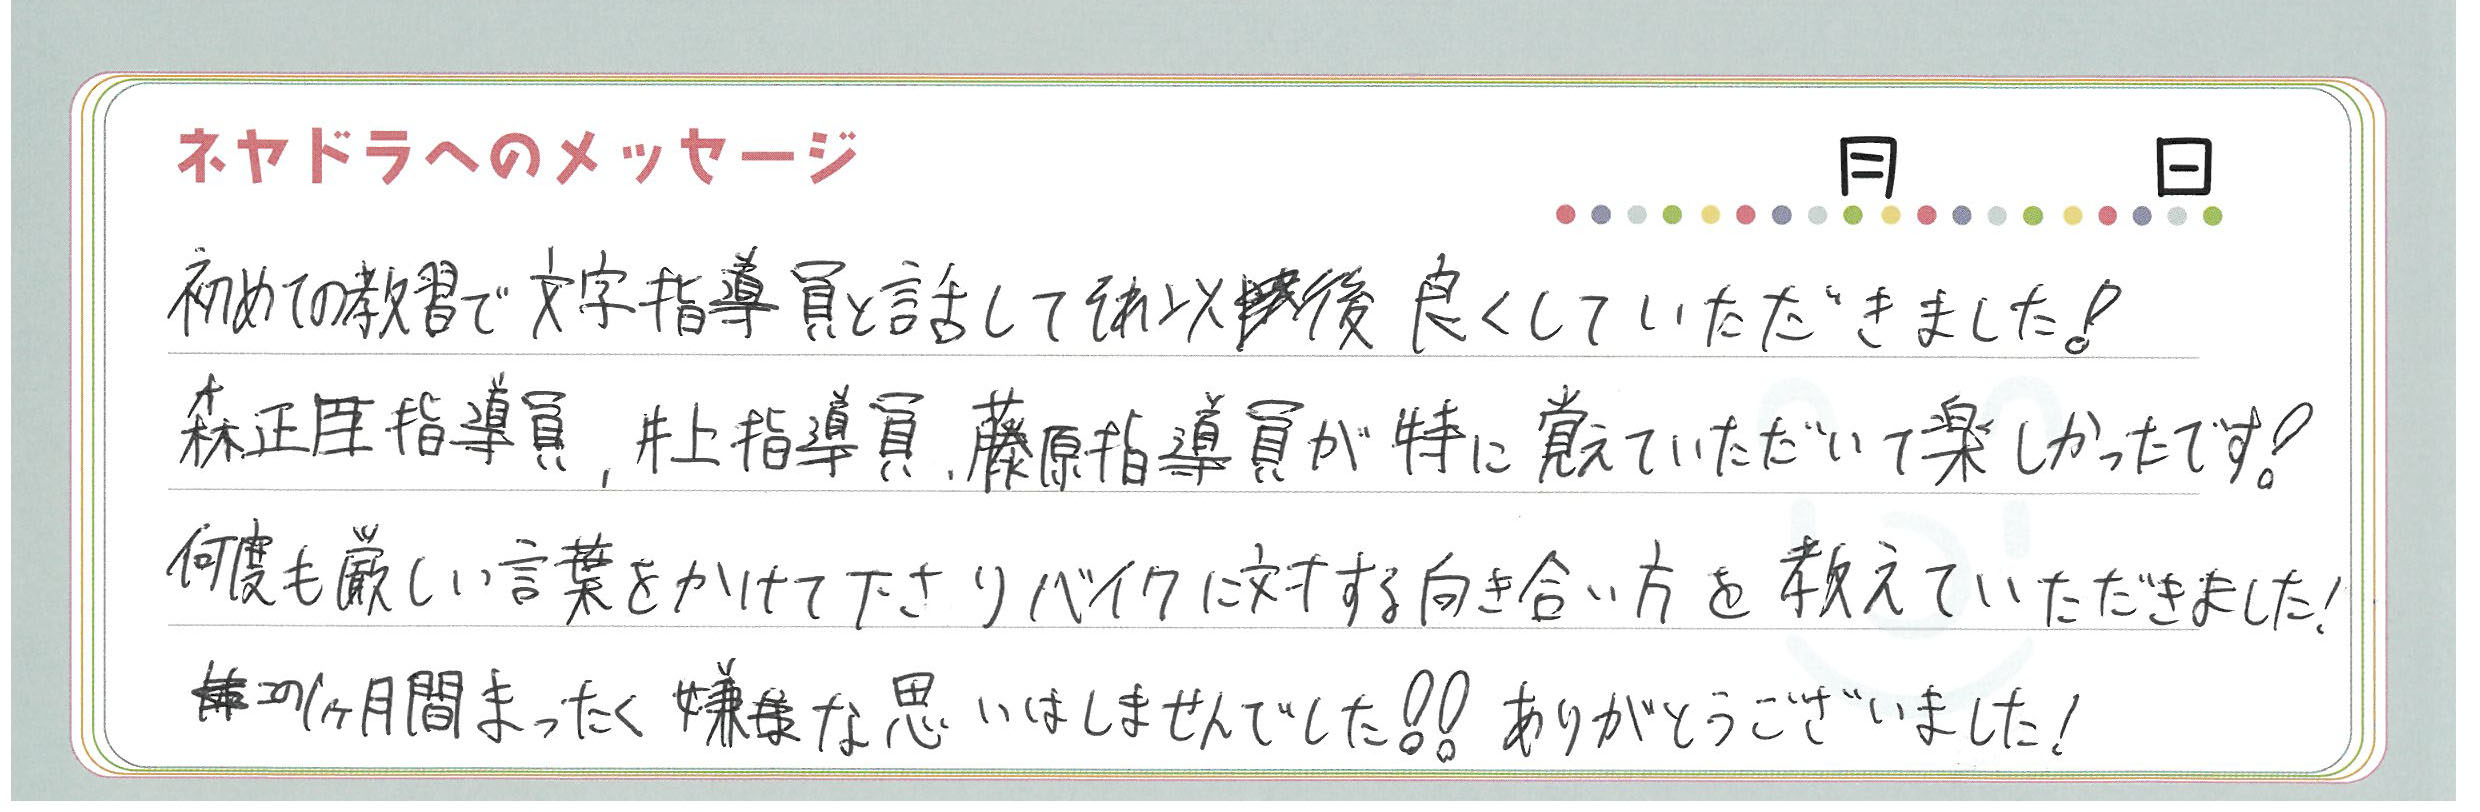 ネヤドラへのメッセージ
月 日
初めての教習で文字指導員と話してそれ以後良くしていただきました!
森正指導員,井上指導員,藤原指導員が特に覚えていただいて楽しかったです!
何度も厳しい言葉をかけて下さりバイクに対する向き合い方を教えていただきました!
この1ヶ月間まったく嫌な思いはしませんでした!!ありがとうございました!